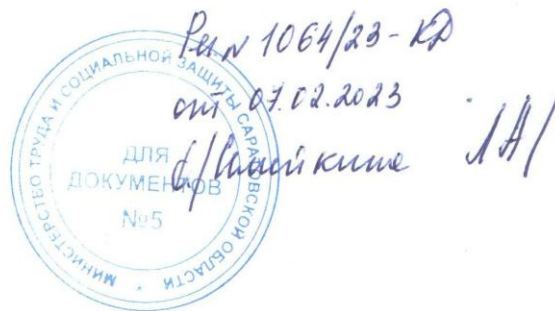 Рег № 1064/23-КД
от 07.02.2023
Л А/
МИНИСТЕРСТВО ТРУДА И СОЦИАЛЬНОЙ ЗАЩИТЫ САРАТОВСКОЙ ОБЛАСТИ *
ДЛЯ
ДОКУМЕНТОВ
№5